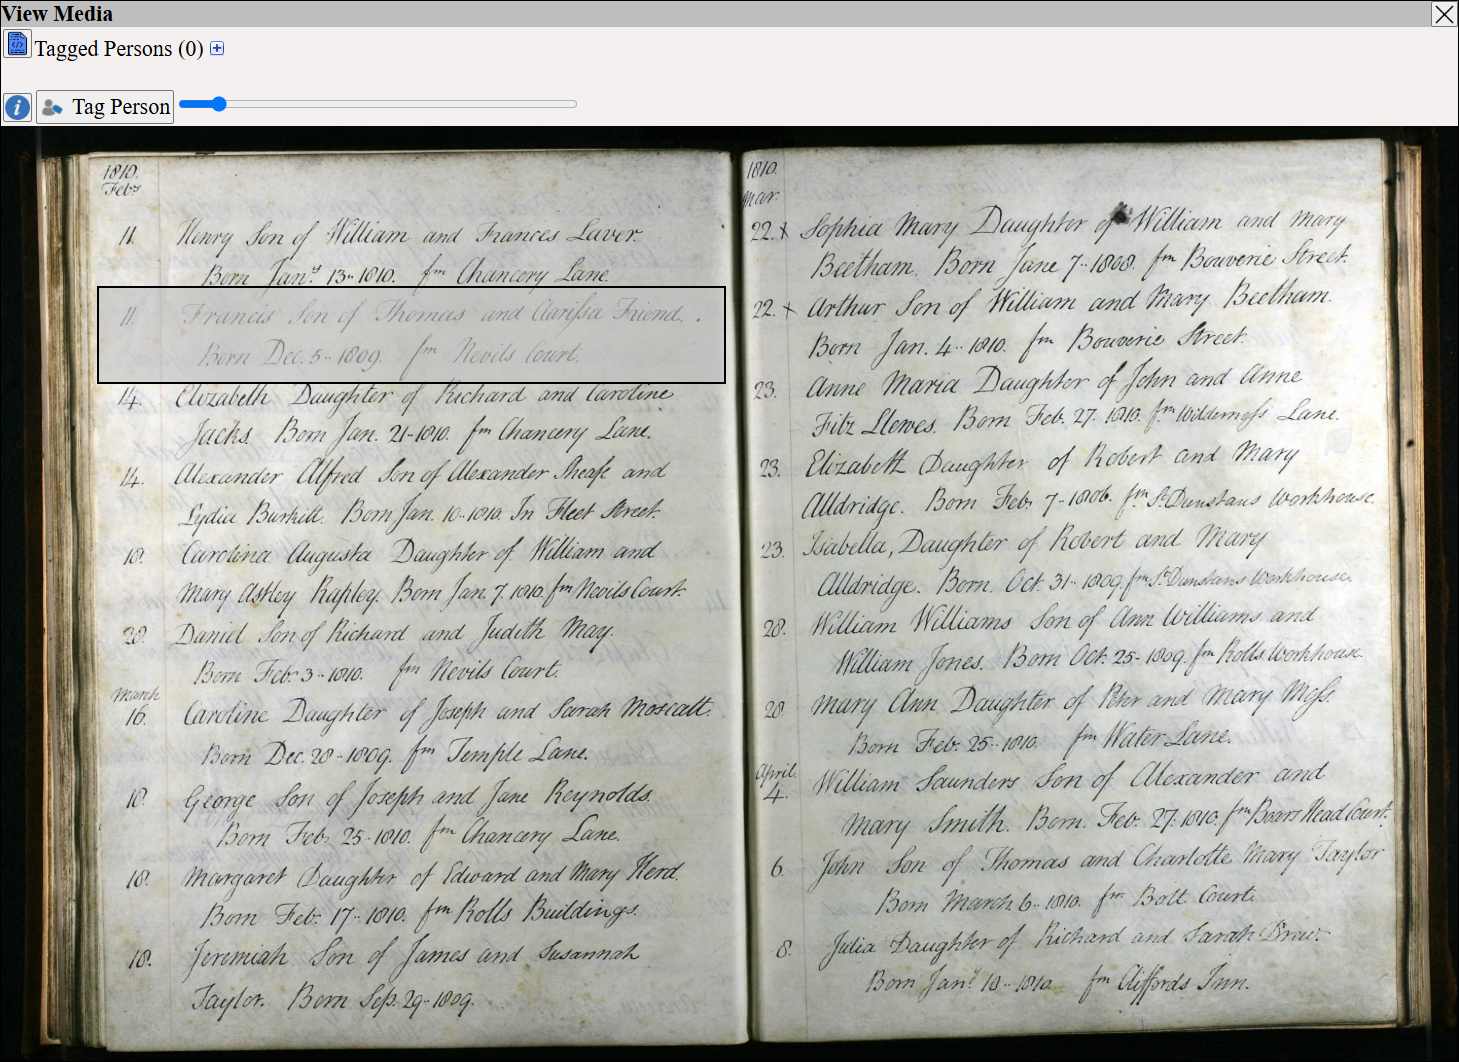 View Media
Tagged Persons (0)
Tag Person
1810.
Feby
11. Henry Son of William and Frances Laver.
Born Jany 13-1810. fm Chancery Lane.
11. Francis Son of Thomas and Clarissa Friend.
Born Dec. 5-1809. fm Nevils Court.
14. Elizabeth Daughter of Richard and Caroline
Jacks. Born Jan. 21-1810. fm Chancery Lane.
14. Alexander Alfred Son of Alexander and
Lydia Burkitt. Born Jan. 10-1810. In Fleet Street.
18. Carolina Augusta Daughter of William and
Mary Astley Rapley. Born Jan. 7. 1810. fm Nevils Court.
28. Daniel Son of Richard and Judith May.
Born Feb. 3-1810. fm Nevils Court.
March
16. Caroline Daughter of Joseph and Sarah Moscatt.
Born Dec. 28-1809. fm Temple Lane.
18. George Son of Joseph and Jane Reynolds.
Born Feb. 25-1810. fm Chancery Lane.
18. Margaret Daughter of Edward and Mary Herd.
Born Feb. 17-1810. fm Rolls Buildings.
18. Jeremiah Son of James and Susannah
Taylor. Born Sep. 29-1809.
1810.
Mar.
22. x Sophia Mary Daughter of William and Mary
Beetham. Born June 7-1808. fm Bouverie Street.
22. x Arthur Son of William and Mary Beetham.
Born Jan. 4-1810. fm Bouverie Street.
23. Anne Maria Daughter of John and Anne
Fitz Llewes. Born Feb. 27. 1810. fm Wilderness Lane.
23. Elizabeth Daughter of Robert and Mary
Alldridge. Born Feb. 7-1806. fm St. Dunstans Workhouse.
23. Isabella, Daughter of Robert and Mary
Alldridge. Born. Oct. 31-1809. fm St. Dunstans Workhouse.
28. William Williams Son of Ann Williams and
William Jones. Born Oct. 25-1809. fm Rolls Workhouse.
28. Mary Ann Daughter of Peter and Mary Mess.
Born Feb. 25-1810. fm Water Lane.
April.
4. William Saunders Son of Alexander and
Mary Smith. Born. Feb. 27. 1810. fm Boars Head Court.
6. John Son of Thomas and Charlotte Mary Taylor
Born March 6-1810. fm Bolt Court.
8. Julia Daughter of Richard and Sarah Drew.
Born Jany 18-1810 fm Cliffords Inn.